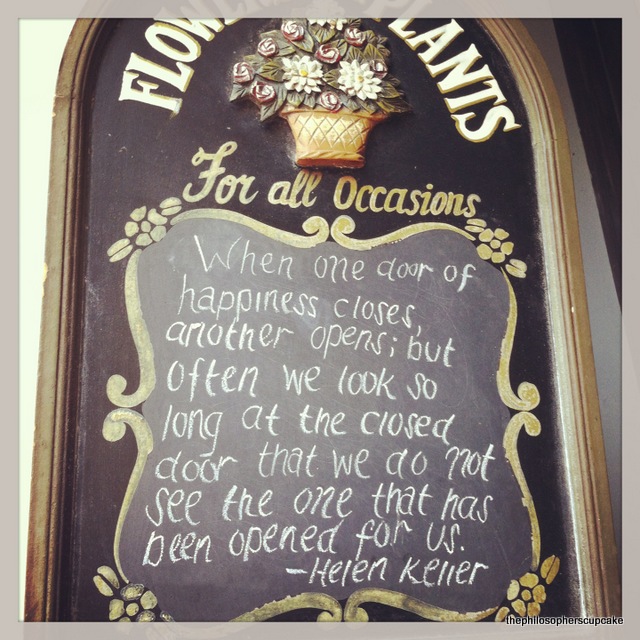 FLOWERS PLANTS
For all Occasions
When one door of
happiness closes,
another opens; but
often we look so
long at the closed
door that we do not
see the one that has
been opened for us.
-Helen Keller
thephilosopherscupcake